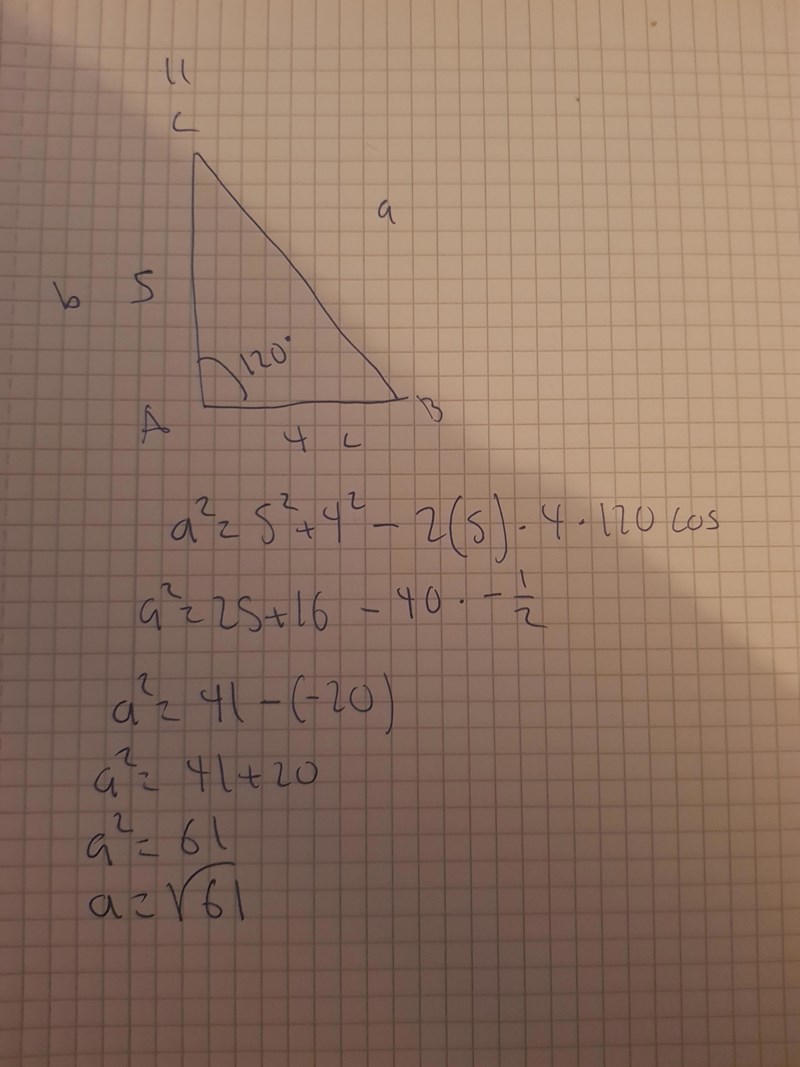 11
C
a
b 5
120°
A
B
4 c
a² = 5² + 4² - 2(5) · 4 · 120 cos
a² = 25 + 16 - 40 · -1/2
a² = 41 - (-20)
a² = 41 + 20
a² = 61
a = √61